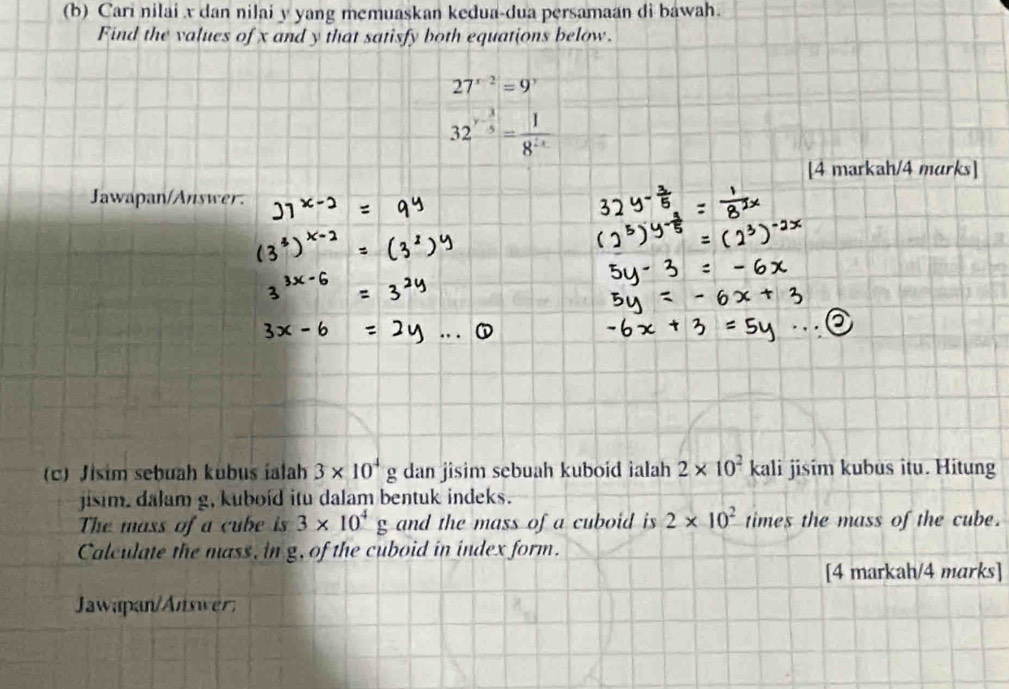 (b) Cari nilai x dan nilai y yang memuaskan kedua-dua persamaan di bawah.
Find the values of x and y that satisfy both equations below.
27^{x-2} = 9^y
32^{y-3/5} = 1/8^{2x}
[4 markah/4 marks]
Jawapan/Answer:
27^{x-2} = 9^y
(3^3)^{x-2} = (3^2)^y
3^{3x-6} = 3^{2y}
3x - 6 = 2y ... ①
32^{y-3/5} = 1/8^{2x}
(2^5)^{y-3/5} = (2^3)^{-2x}
5y - 3 = -6x
5y = -6x + 3
-6x + 3 = 5y ... ②
(c) Jisim sebuah kubus ialah 3 × 10^4 g dan jisim sebuah kuboid ialah 2 × 10^2 kali jisim kubus itu. Hitung
jisim, dalam g, kuboid itu dalam bentuk indeks.
The mass of a cube is 3 × 10^4 g and the mass of a cuboid is 2 × 10^2 times the mass of the cube.
Calculate the mass, in g, of the cuboid in index form.
[4 markah/4 marks]
Jawapan/Answer: